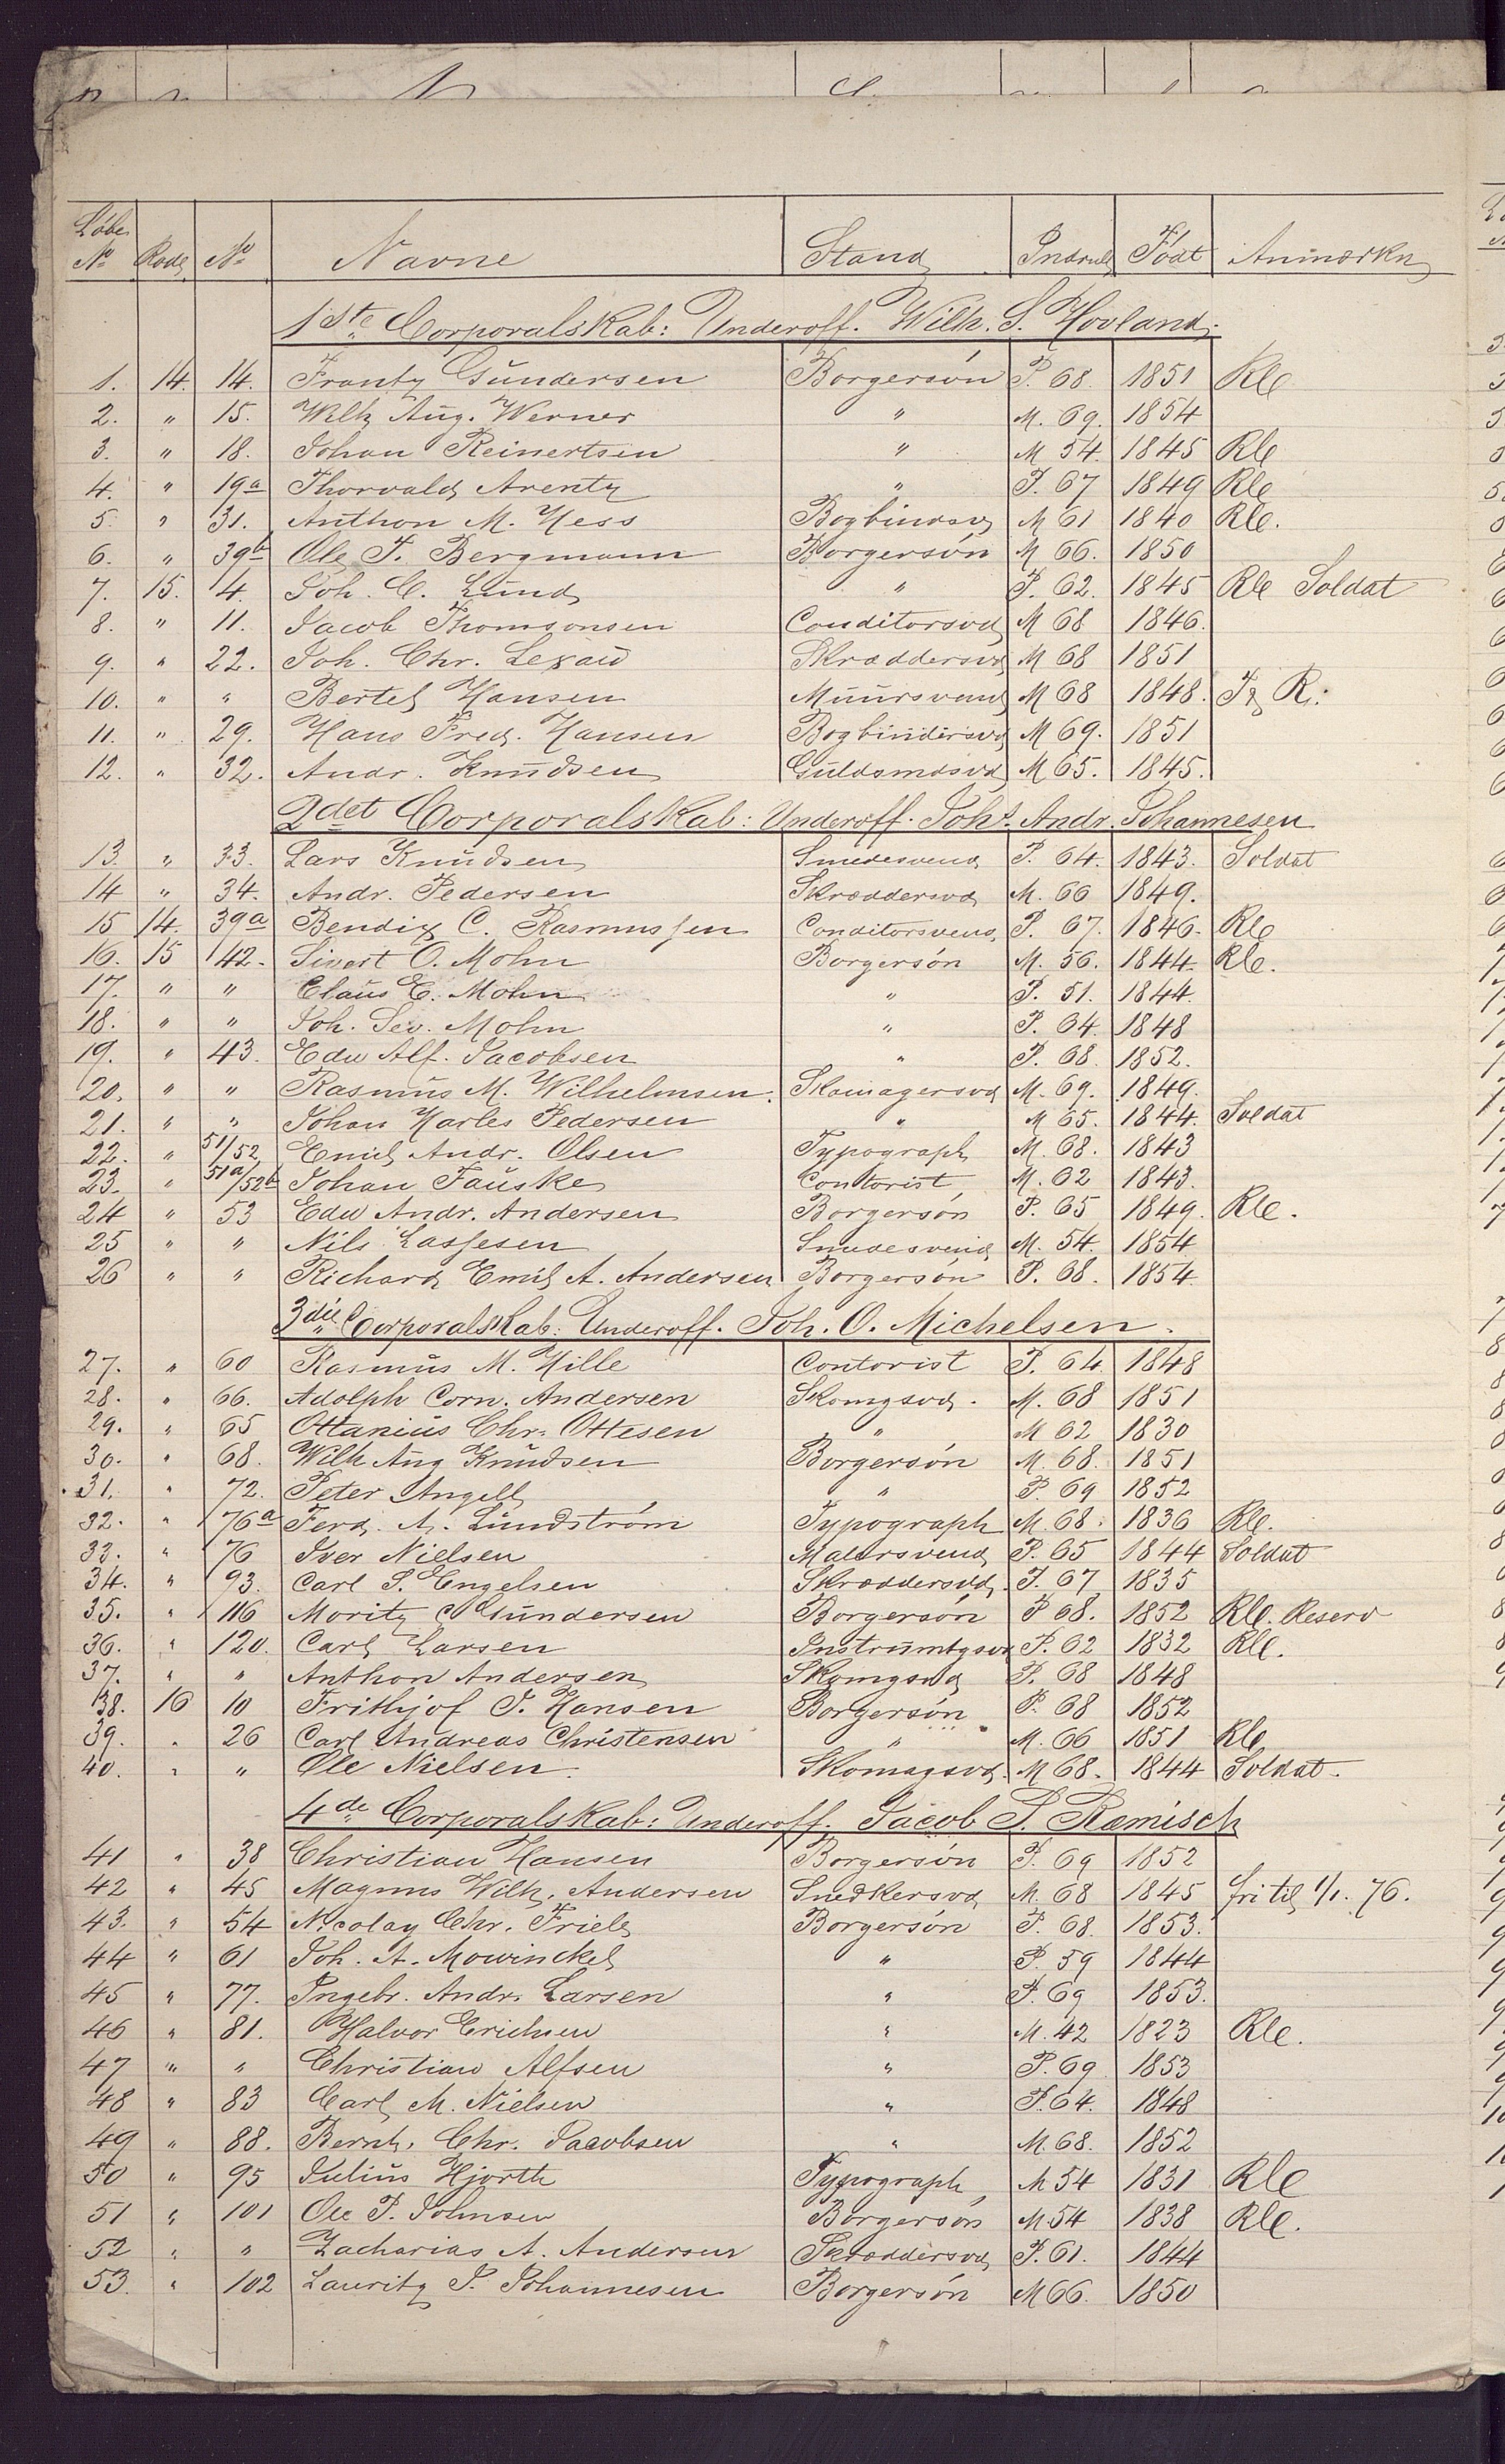 Løbe
No Rode No Navne Stand Indrul Født Anmærkn
1ste Corporalskab: Underoff. Wilh. S. Hovland.
1. 14. 14. Frantz Gundersen Borgersøn P. 68. 1851 Rle
2. " 15. Wilh Aug. Werner " M. 69. 1854
3. " 18. Johan Reinertsen " M 54. 1845 Rle
4. " 19a Thorvald Arentz " P. 67 1849 Rle
5. " 31. Anthon M. Hess Bogbindsv M 61 1840 Rle.
6. " 39b Ole J. Bergmann Borgersøn M 66. 1850
7. 15. 4. Joh. C. Lund " P. 62. 1845 Rle Soldat
8. " 11. Jacob Thomsonsen Conditorsvd M 68 1846.
9. " 22. Joh. Chr. Lexau Skræddersvd M 68 1851
10. " " Bertel Hansen Muursvend M 68 1848.
11. " 29. Hans Fred. Hansen Bogbindersvd M 69. 1851
12. " 32. Andr. Knudsen Guldsmdsvd M 65. 1845.
2det Corporalskab: Underoff. Johs. Andr. Johannesen
13. " 33. Lars Knudsen Smedesvend P. 64. 1843. Soldat
14 " 34. Andr. Pedersen Skræddersvd M. 66 1849.
15 14. 39a Bendix C. Rasmussen Conditorsvend, P. 67. 1846. Rle
16. 15 42. Sivert O. Mohn Borgersøn M. 56. 1844. Rle.
17. " " Claus E. Mohn " P. 51. 1844.
18. " " Joh. Sev. Mohn " P. 64. 1848
19. " 43. Edw Alf. Jacobsen " P. 68. 1852.
20. " " Rasmus M. Wilhelmsen. Skomagersvd M. 69. 1849.
21. " " Johan Harles Pedersen " M 65. 1844. Soldat
22. " 51/52 Emil Andr. Olsen Typograph M. 68. 1843
23. " 51a/52b Johan Fauske Contorist M. 62 1843.
24 " 53 Edw Andr. Andersen Borgersøn P. 65 1849. Rle.
25 " " Nils Lassesen Smedesvend M. 54. 1854
26 " " Richard Emil A. Andersen Borgersøn P. 68. 1854.
3die Corporalskab: Underoff. Joh. O. Michelsen.
27. " 60 Rasmus M. Hille Contorist P. 64. 1848
28. " 66. Adolph Corn. Andersen Skomgsvd. M. 68 1851
29. " 65 Ottanius Chr. Ottesen " M 62 1830
30. " 68. Wilh Aug Knudsen Borgersøn M. 68. 1851
31. " 72. Peter Angell " P. 69 1852
32. " 76a Ferd. A. Lundstrøm Typograph M. 68. 1836 Rle.
33. " 76 Iver Nielsen Malersvend P. 65 1844 Soldat
34. " 93. Carl S. Engelsen Skræddersvd. P. 67 1835
35. " 116 Moritz C Gundersen Borgersøn P 68. 1852 Rle. Reserv
36. " 120. Carl Larsen Instrumtgsvd P. 62 1832 Rle.
37. " " Anthon Andersen Skomgsvd P. 68 1848
38. 16 10 Frithjof J. Hansen Borgersøn P. 68 1852
39. " 26 Carl Andreas Christensen " M. 66 1851 Rle
40. " " Ole Nielsen. Skomagsvd. M 68. 1844 Soldat.
4de Corporalskab: Underoff. Jacob P. Ræmisch
41 " 38 Christian Hansen Borgersøn P. 69 1852
42 " 45 Magnus Wilh. Andersen Snedkersvd M. 68 1845 fri til 1/1. 76.
43. " 54 Nicolay Chr. Friele Borgersøn P. 68. 1853.
44 " 61 Joh. A. Mowinckel " P. 59 1844
45 " 77. Ingebr. Andr. Larsen " P. 69 1853.
46 " 81. Halvor Erichsen " M. 42 1823 Rle.
47 " " Christian Alfsen " P. 69 1853
48 " 83 Carl M. Nielsen " P. 64. 1848
49 " 88. Bernh. Chr. Jacobsen " M. 68. 1852
50 " 95 Julius Hjorth Typograph M 54 1831 Rle
51 " 101 Ole P. Johnsen Borgersøn M 54 1838 Rle.
52 " " Zacharias A. Andersen Skræddersvd P. 61. 1844
53. " 102 Lauritz P. Johannesen Borgersøn M 66. 1850